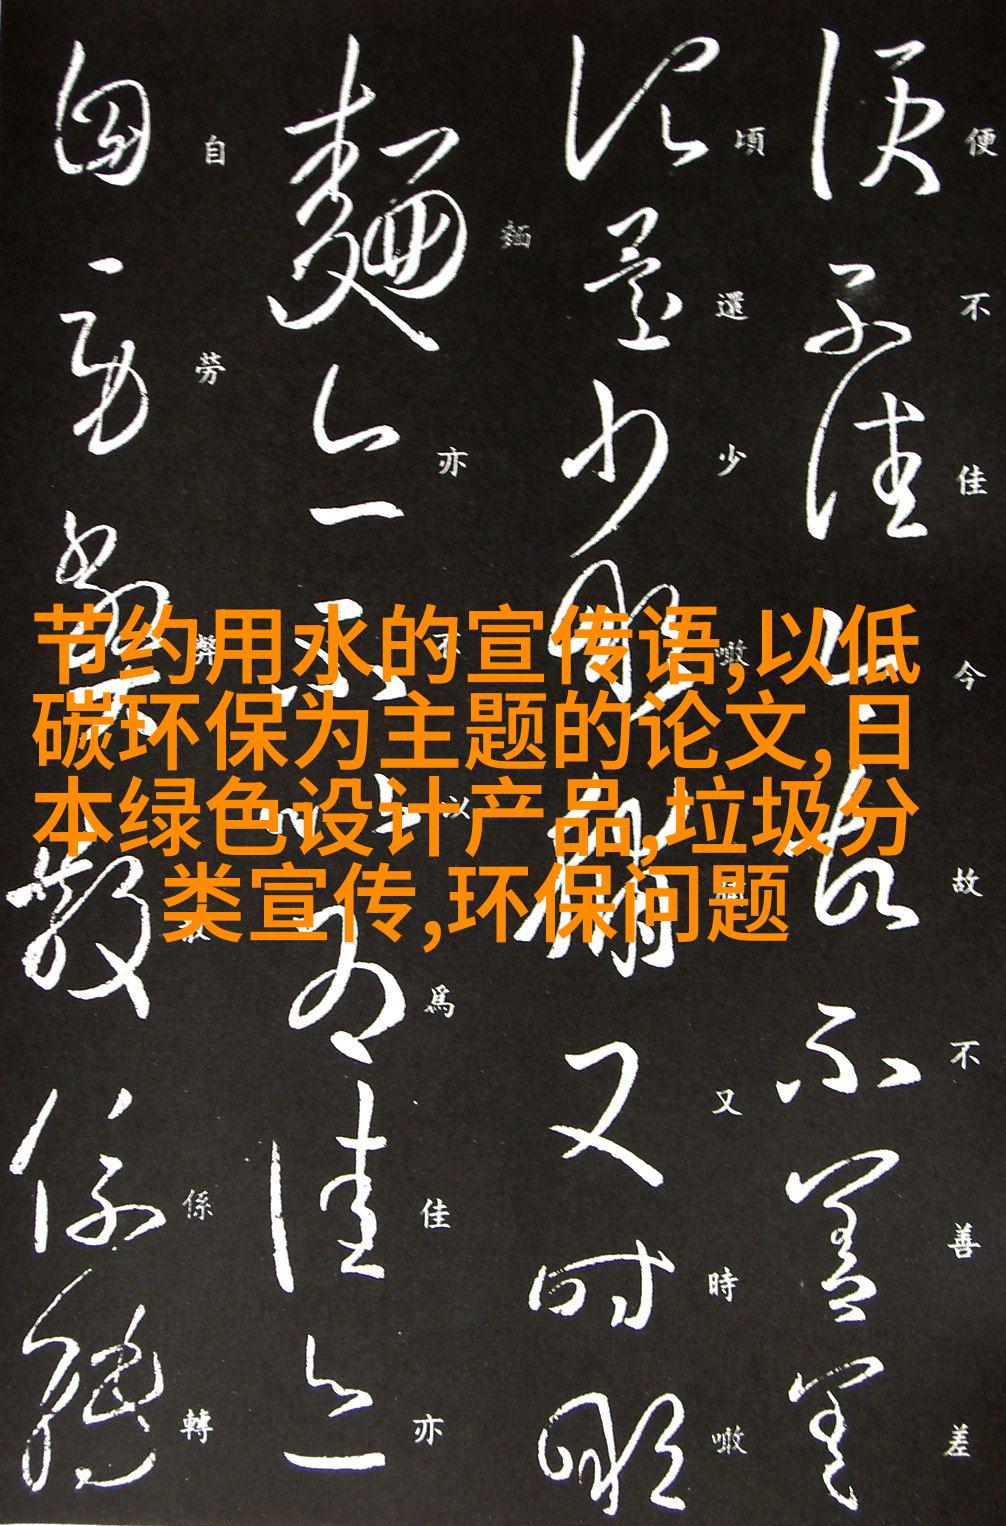 节约用水的宣传语,以低
碳环保为主题的论文,日
本绿色设计产品,垃圾分
类宣传,环保问题
便不佳今故不善差
頃還少噉又時噉
麵亦不以爲佳亦
自勞弊散係轉